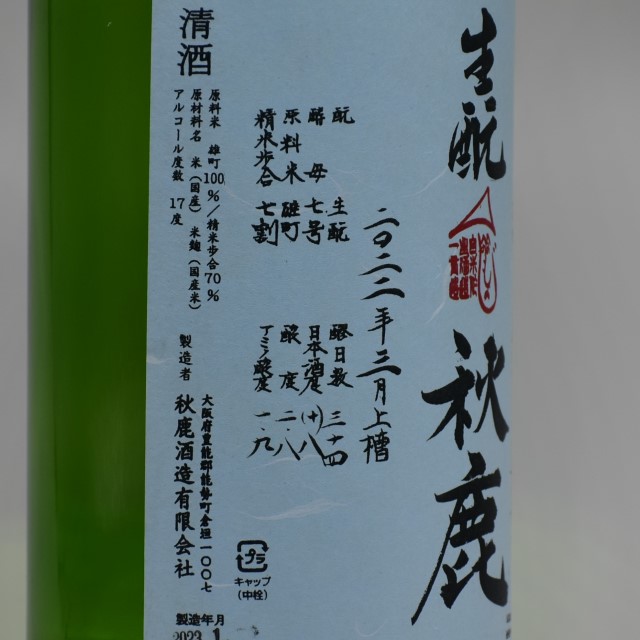 生酛
秋鹿
二〇二二年三月上槽
酛 生酛
酵母 七号
原料米 雄町
精米歩合 七割
醪日数 三十四
日本酒度 (+)八
酸度 二・八
アミノ酸度 一・九
清酒
原料米 雄町100%/精米歩合70%
原材料名 米(国産) 米麹(国産米)
アルコール度数 17度
製造者
大阪府豊能郡能勢町倉垣一〇〇七
秋鹿酒造有限会社
プラ
キャップ
(中栓)
製造年月
2023. 1